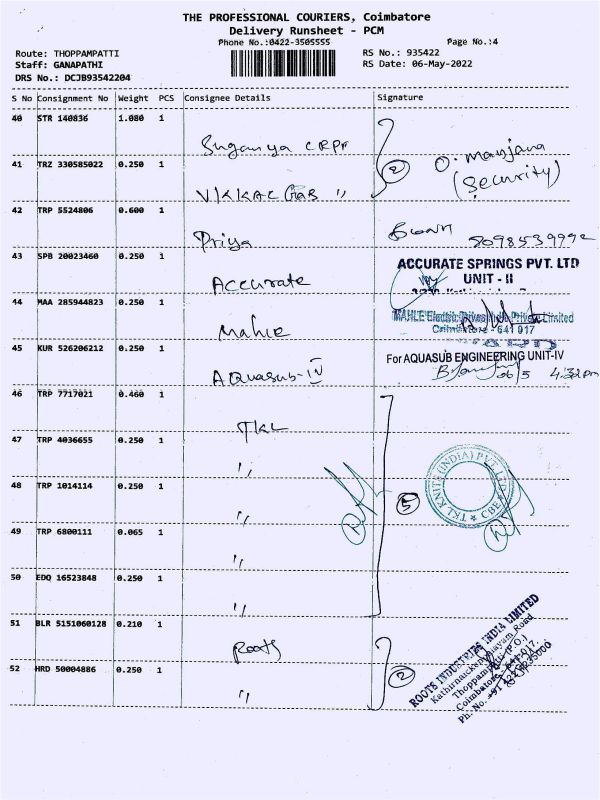 THE PROFESSIONAL COURIERS, Coimbatore
Delivery Runsheet - PCM
Phone No.:0422-3505555 Page No.:4
Route: THOPPAMPATTI RS No.: 935422
Staff: GANAPATHI RS Date: 06-May-2022
DRS No.: DCJB93542204
S No Consignment No Weight PCS Consignee Details Signature
40 STR 140836 1.080 1 Suganya CRPF
41 TRZ 330585022 0.250 1 VKKAL GAB " 2 O. Manjana
(Security)
42 TRP 5524806 0.600 1 Priya 8098539992
43 SPB 20023460 0.250 1 Accurate ACCURATE SPRINGS PVT. LTD
UNIT - II
44 MAA 285944823 0.250 1 Mahle MAHLE Electric Drives India Private Limited
Coimbatore - 641 017
45 KUR 526206212 0.250 1 AQuasub-IV For AQUASUB ENGINEERING UNIT-IV
06/5 4:32 pm
46 TRP 7717021 0.460 1 TKL
47 TRP 4036655 0.250 1 "
48 TRP 1014114 0.250 1 " 5 TKL KNITS (INDIA) PVT. LTD ★ CBE ★
49 TRP 6800111 0.065 1 "
50 EDQ 16523848 0.250 1 "
51 BLR 5151060128 0.210 1 Roots
52 HRD 50004886 0.250 1 " 2
ROOTS INDUSTRIES INDIA LIMITED
Kathirnaickenpalayam Road
Thoppampatti (P.O.)
Coimbatore - 641 017.
Ph. No. +91